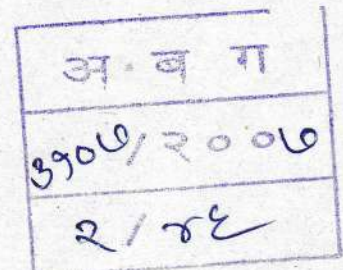 अ ब ग
३१०७/२००७
२/४६